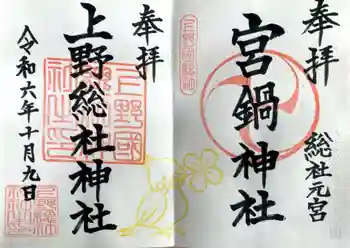 奉拝
総社元宮
宮鍋神社
奉拝
上野総社神社
令和六年十月九日